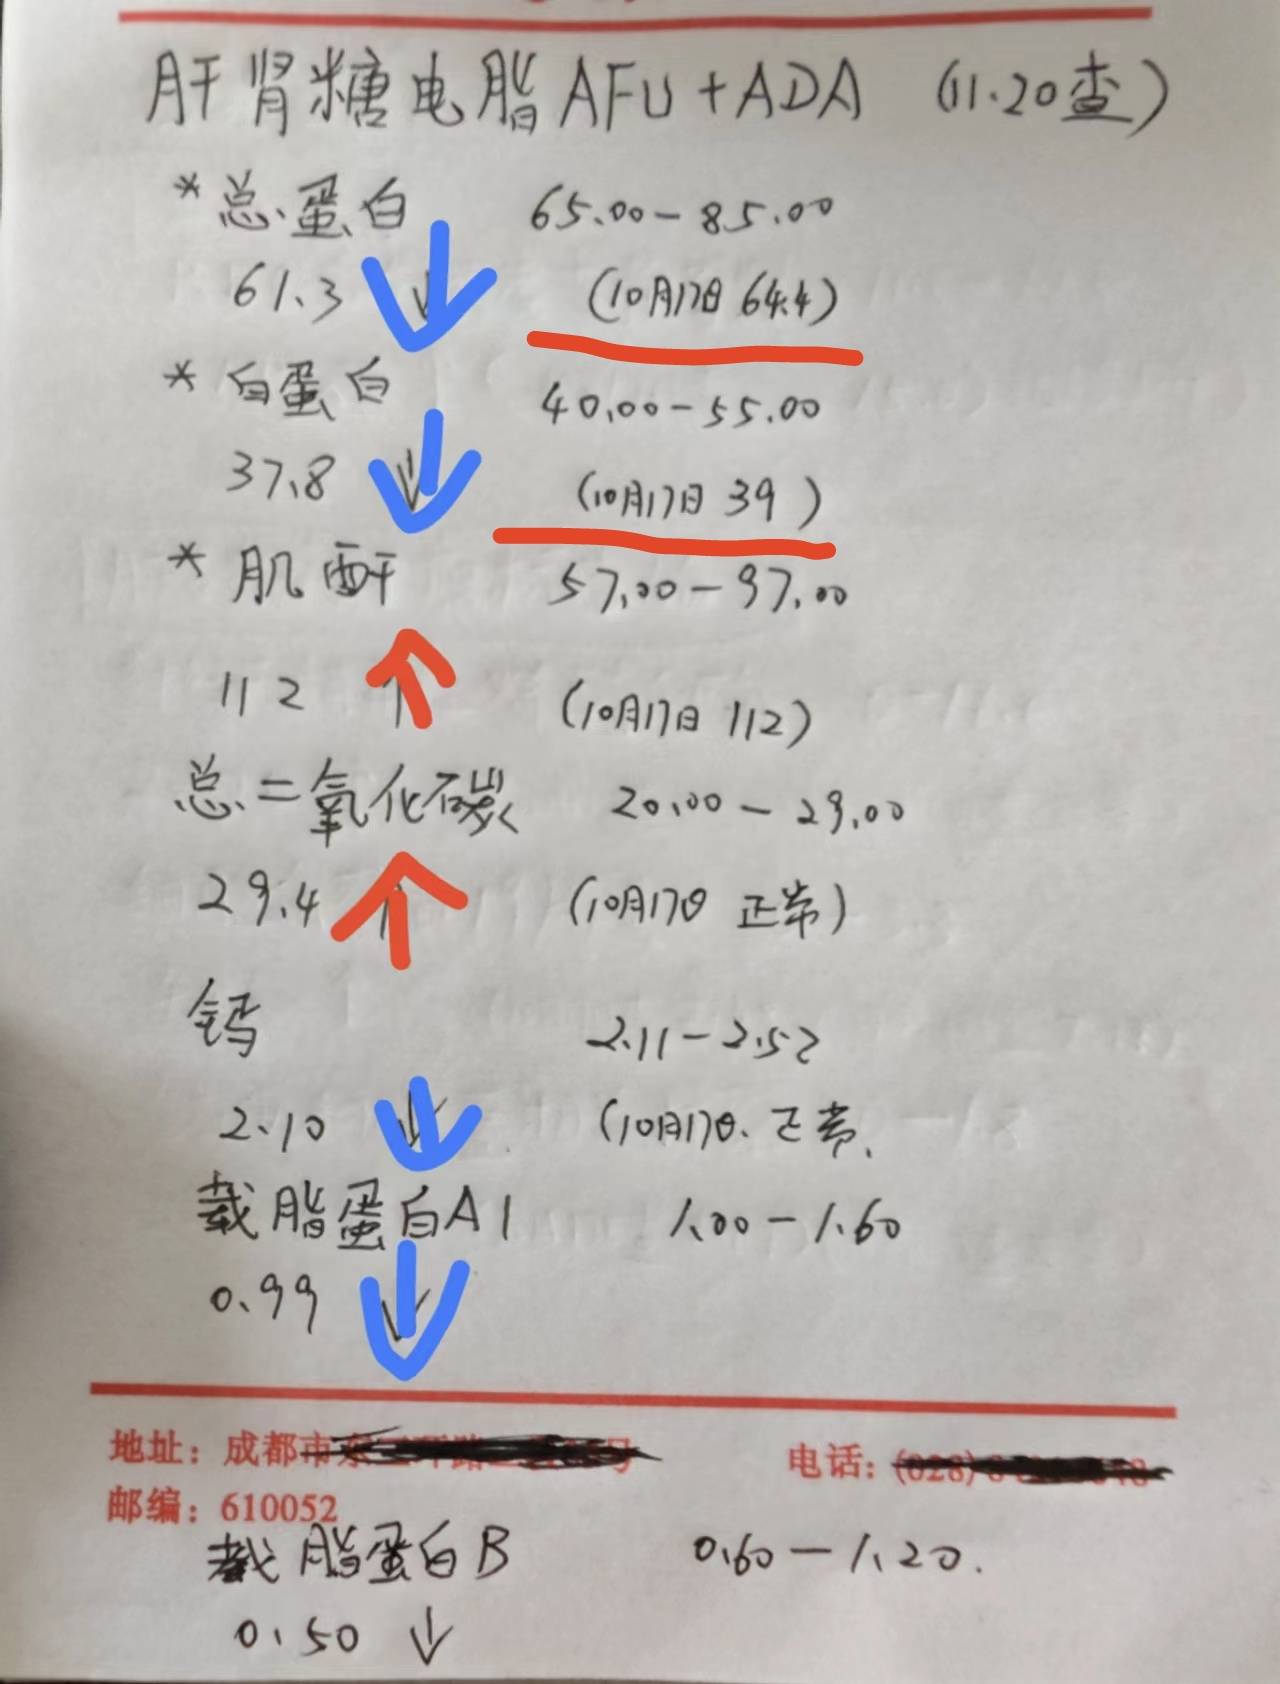 肝肾糖电脂AFU+ADA (11.20查)
*总蛋白 65.00-85.00
61.3 ↓ (10月17日 64.4)
*白蛋白 40.00-55.00
37.8 ↓ (10月17日 39)
*肌酐 57.00-97.00
112 ↑ (10月17日 112)
总二氧化碳 20.00-29.00
29.4 ↑ (10月17日 正常)
钙 2.11-2.52
2.10 ↓ (10月17日. 正常.
载脂蛋白A1 1.00-1.60
0.99 ↓
地址：成都市 电话：(028)
邮编：610052
载脂蛋白B 0.60-1.20.
0.50 ↓